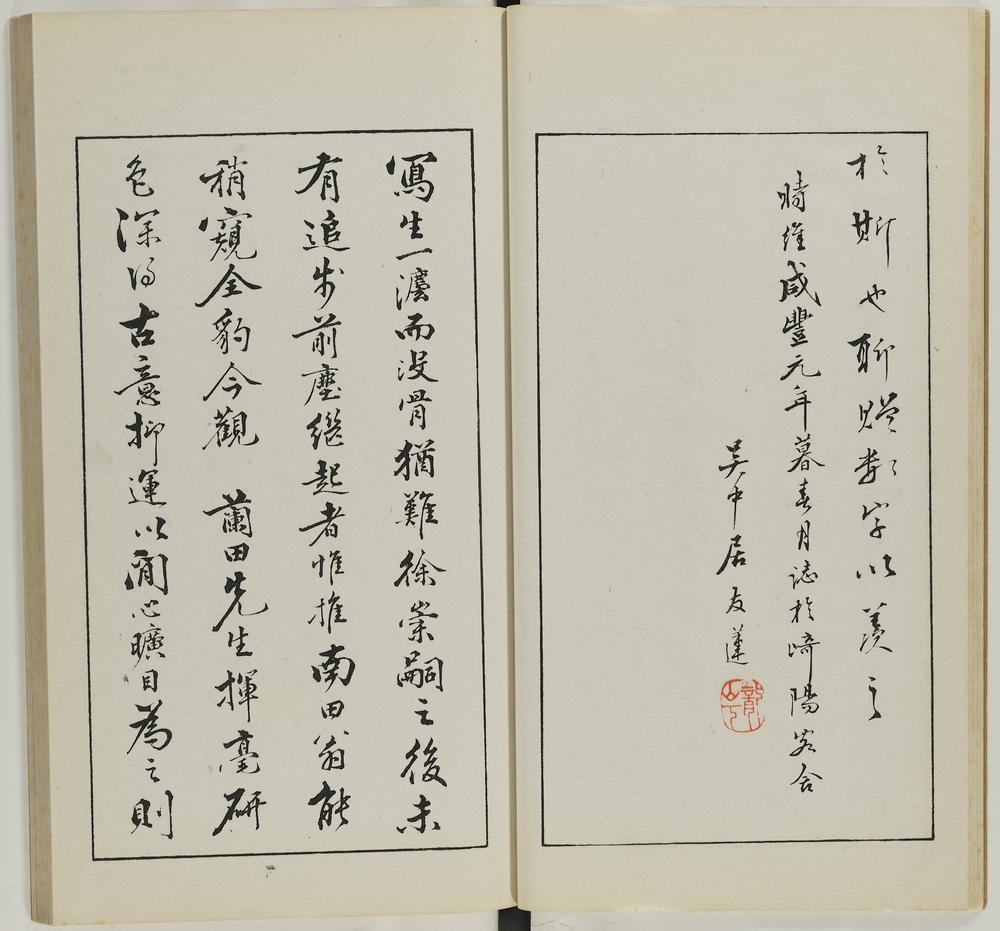 於斯也聊贈數字以美之
時維咸豐元年暮春月誌於崎陽客舍
吳中居友蓮
寫生一灋而没骨猶難徐崇嗣之後未
有追步前塵繼起者惟推南田翁能
稍窺全豹今觀 蘭田先生揮毫研
色深得古意抑運以閒心曠目為之則